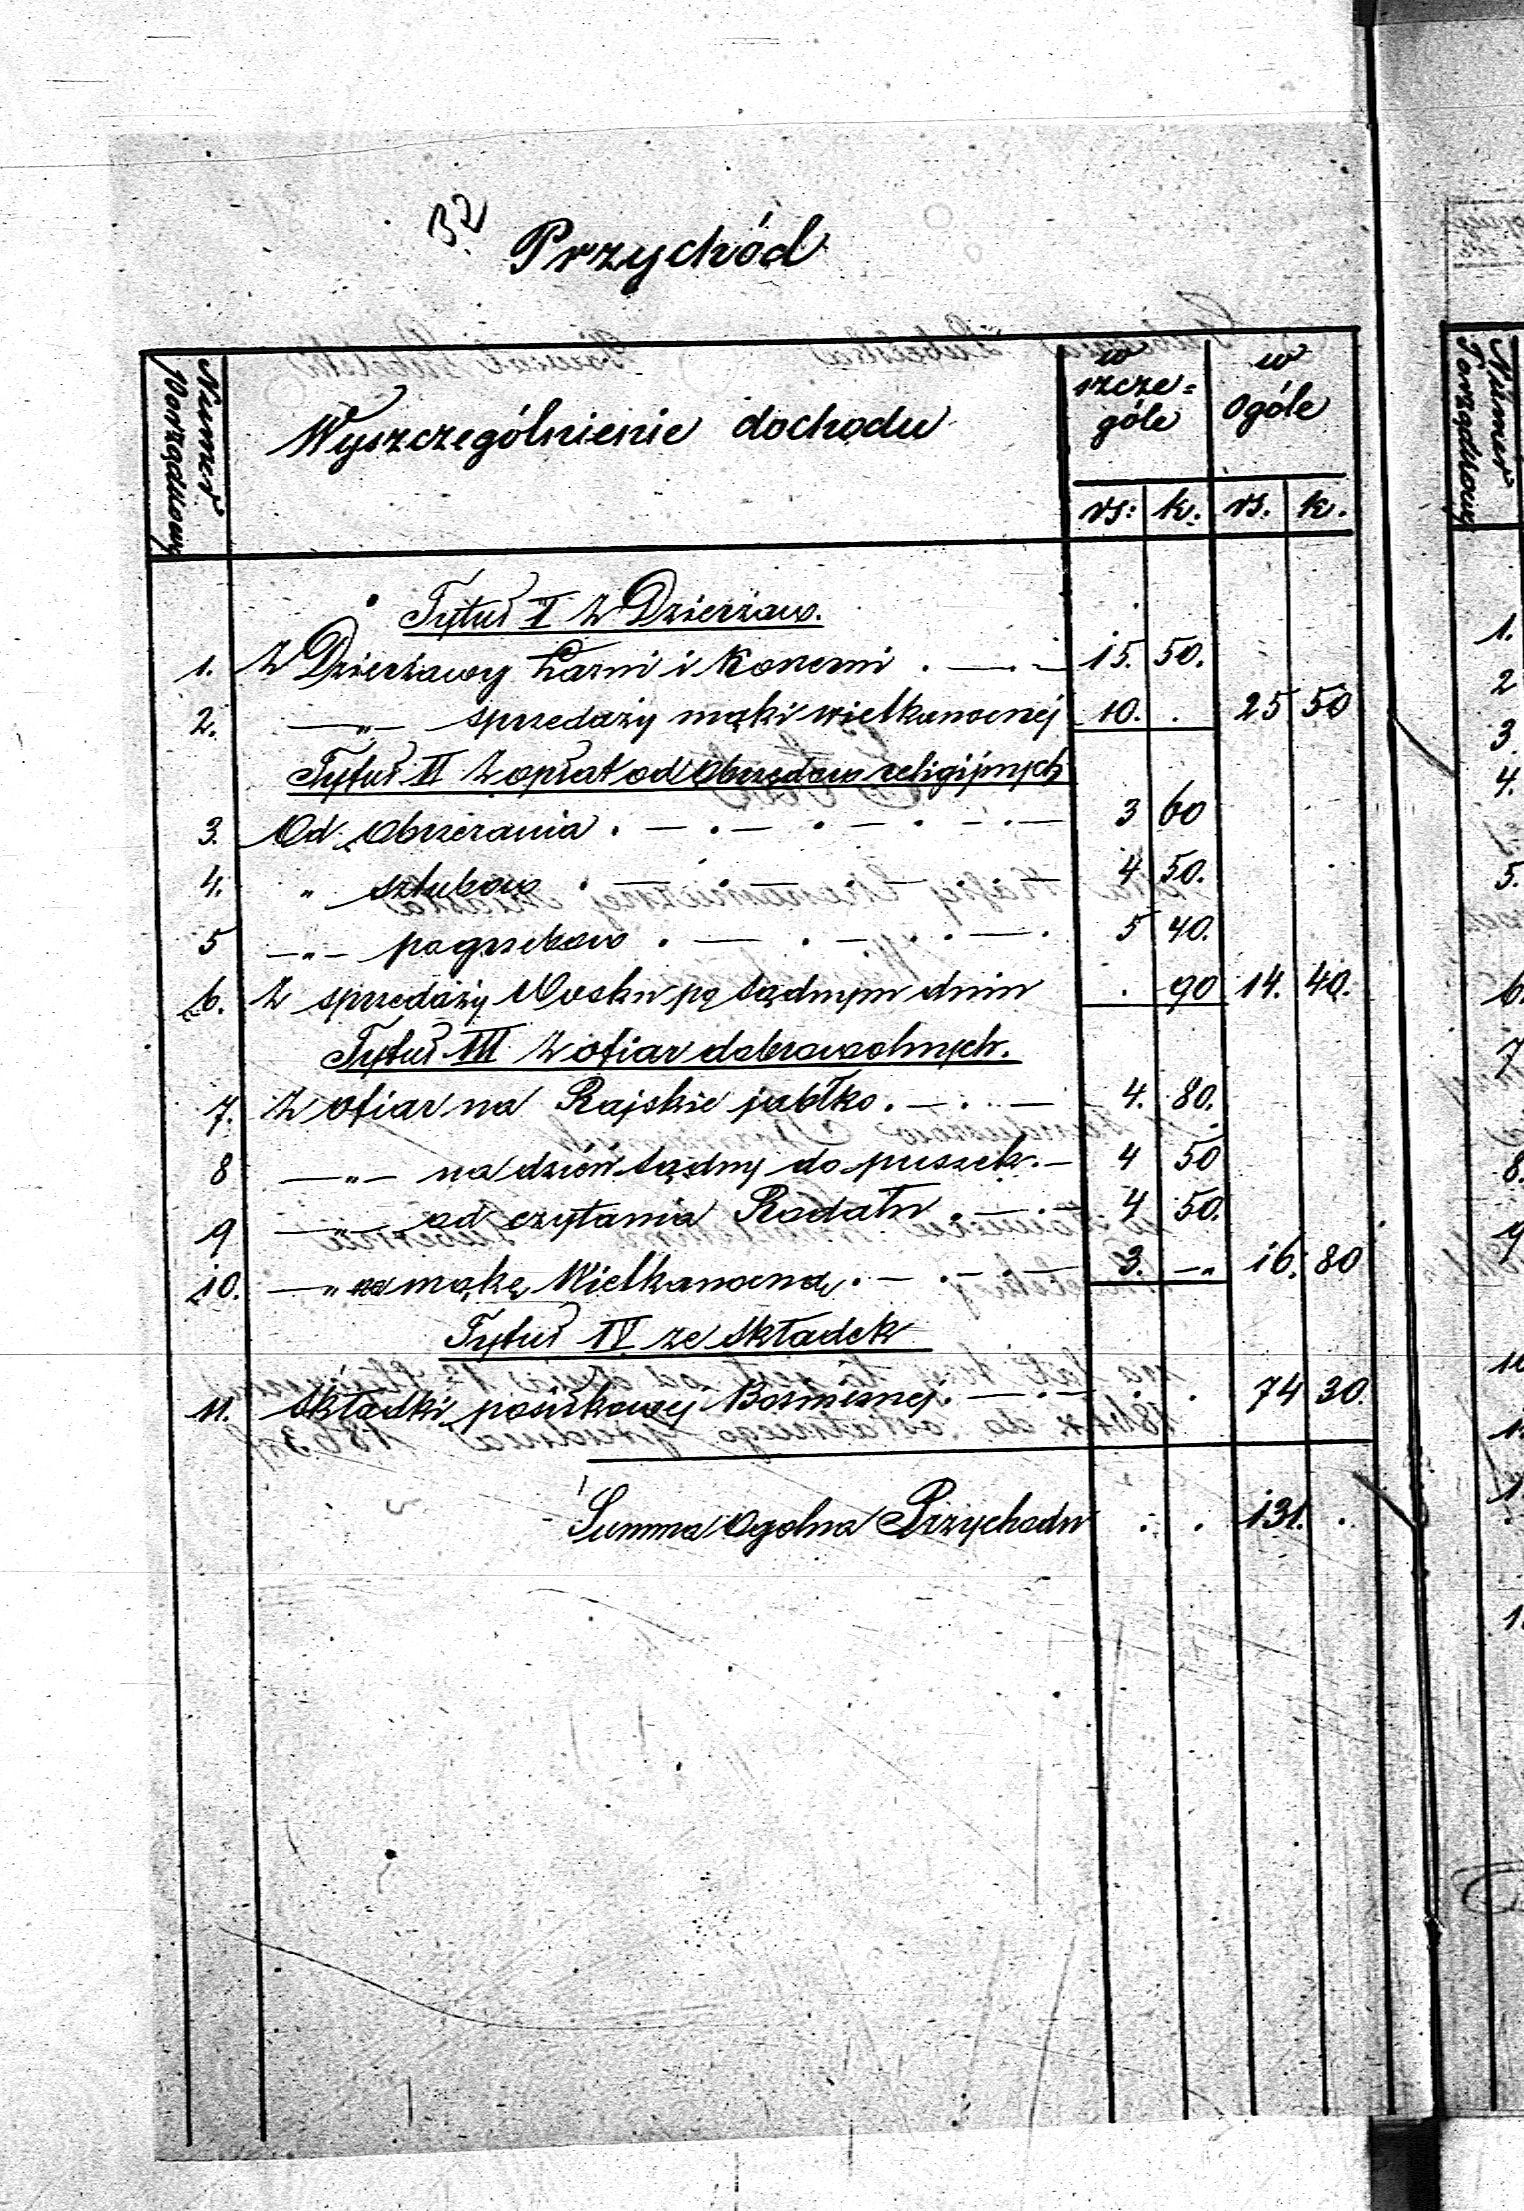 32
Przychód
Numer Porządkowy
Wyszczególnienie dochodu
w szcze=góle
w ogóle
rs: k. rs. k.
Tytuł I Z Dzierżaw.
1. Z Dzierżawy Łaźni i Konewni . — . — 15. 50.
2. —„— sprzedaży mąki wielkanocnéj 10. . 25 50
Tytuł II Z opłat od Obrzędów religijnych
3. Od Obrzezania . — . — . — . — . — 3 60
4. „ szlubow . — . — . — . — 4 50.
5 —„— pogrzebow . — . — . — . 5 40.
6. Z sprzedaży Wosku po Sądnym dniu . 90 14. 40.
Tytuł III Z ofiar dobrowolnych.
7. Z ofiar na Rajskie jabłko . — . — 4. 80.
8 —„— na dzień Sądny do puszek. — 4 50
9 —„— od czytania Rodału . — . — 4 50.
10. —„ na mąkę Wielkanocną . — . — . — 3. —„ 16. 80
Tytuł IV ze Składek
11. Składki posiłkowej Bożnicznej . — . — . . 74 30.
Summa Ogolna Przychodu . . 131. .
Numer Porządkowy
1.
2
3.
4.
5.